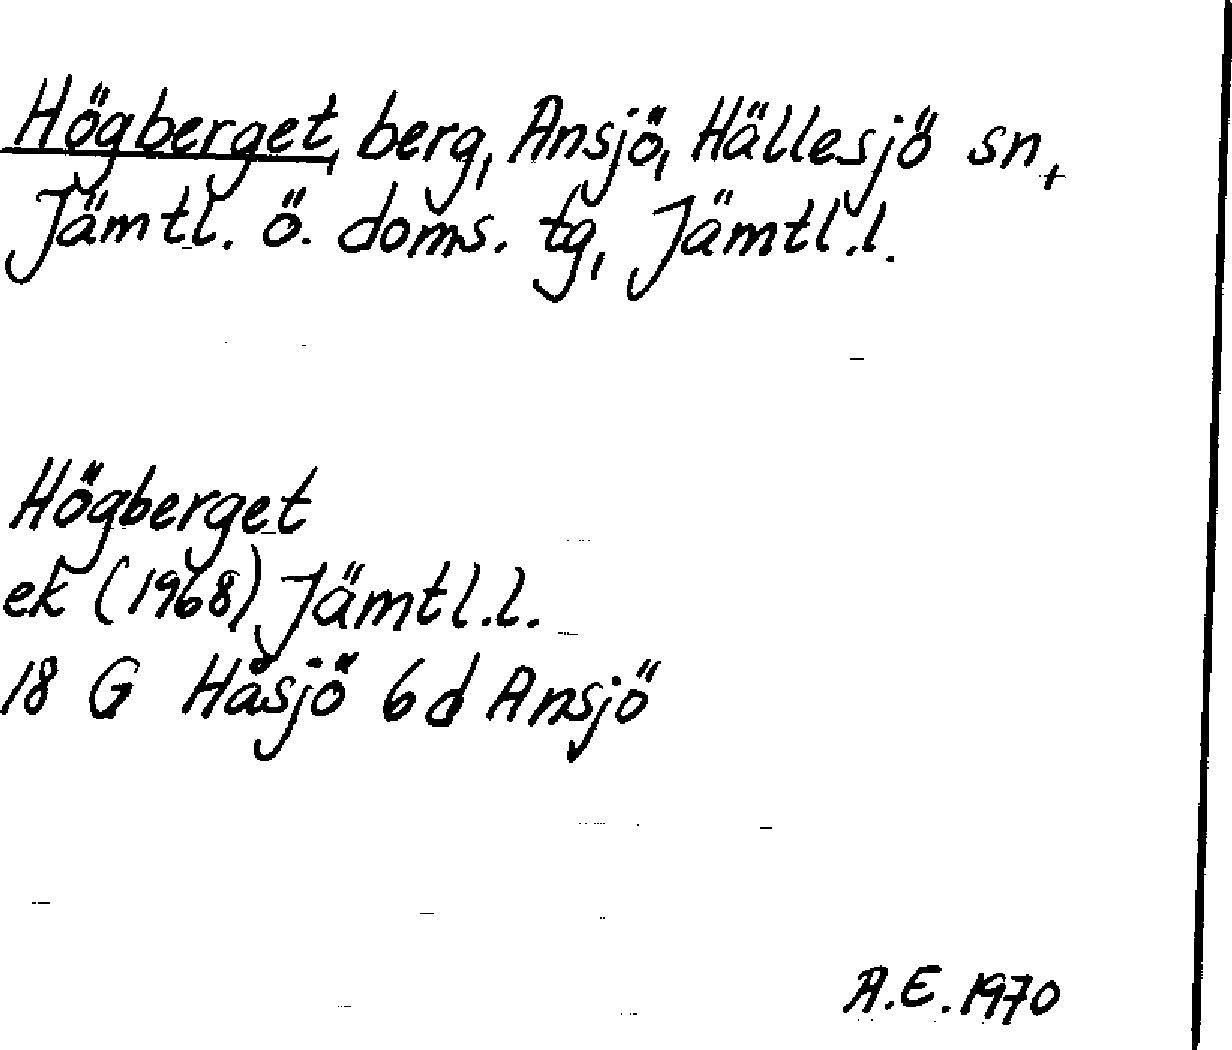 Högberget, berg, Ansjö, Hällesjö sn,
Jämtl. ö. doms. tg, Jämtl.l.
Högberget
ek (1968) Jämtl.l.
18 G Håsjö 6d Ansjö
A.E. 1970